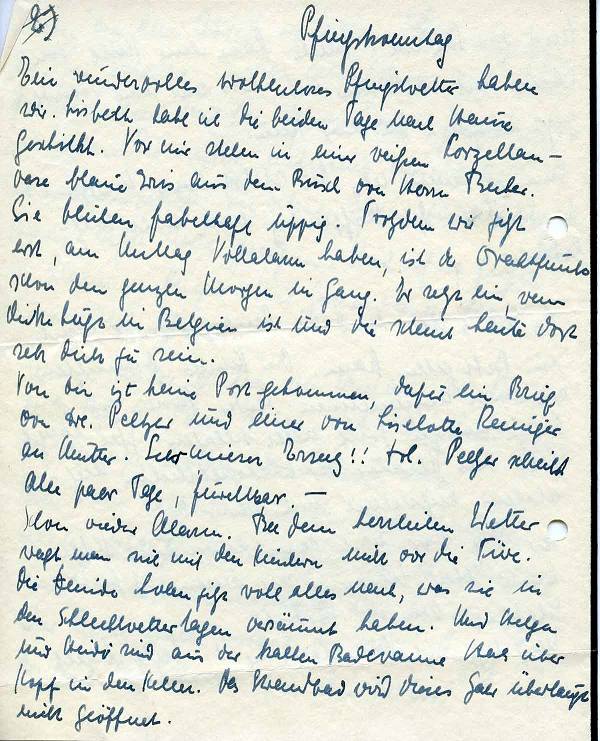 Pfingstsonntag
Ein wundervolles wolkenloses Pfingstwetter haben
wir. Lisbeth habe ich die beiden Tage nach Hause
geschickt. Vor mir stehen in einer weißen Porzellan-
vase blaue Iris aus dem Busch von Herrn Becker.
Sie blühen fabelhaft üppig. Trotzdem wir jetzt
erst, am Mittag Vollalarm haben, ist der Drahtfunk
schon den ganzen Morgen in Gang. Er setzt ein, wenn
dicke Luft in Belgien ist und die scheint heute dort
sehr dick zu sein.
Von dir ist keine Post gekommen, dafür ein Brief
von Dr. Peltzer und einer von Liselotte Reiniger
an Mutter. Peltzer schreibt
alle paar Tage, furchtbar. —
Schon wieder Alarm. Bei dem herrlichen Wetter
wagt man sich mit den Kindern nicht vor die Türe.
Die Feinde holen jetzt wohl alles nach, was sie in
den Schlechtwettertagen versäumt haben. Und Helga
und Heidi sind aus der kalten Badewanne Hals über
Kopf in den Keller. Das Strandbad wird dieses Jahr überhaupt
nicht geöffnet.